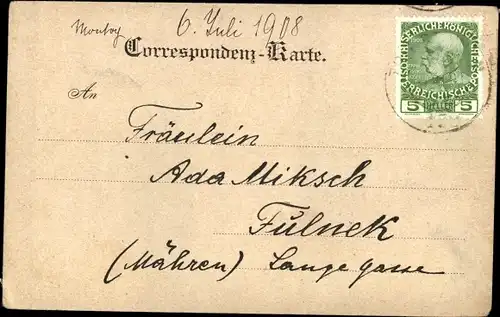 Montag 6. Juli 1908
Correspondenz-Karte.
An
KAISERLICHE KÖNIGLICHE ÖSTERREICHISCHE
5 HELLER 5
Fräulein
Ada Miksch
Fulnek
(Mähren) Lange gasse